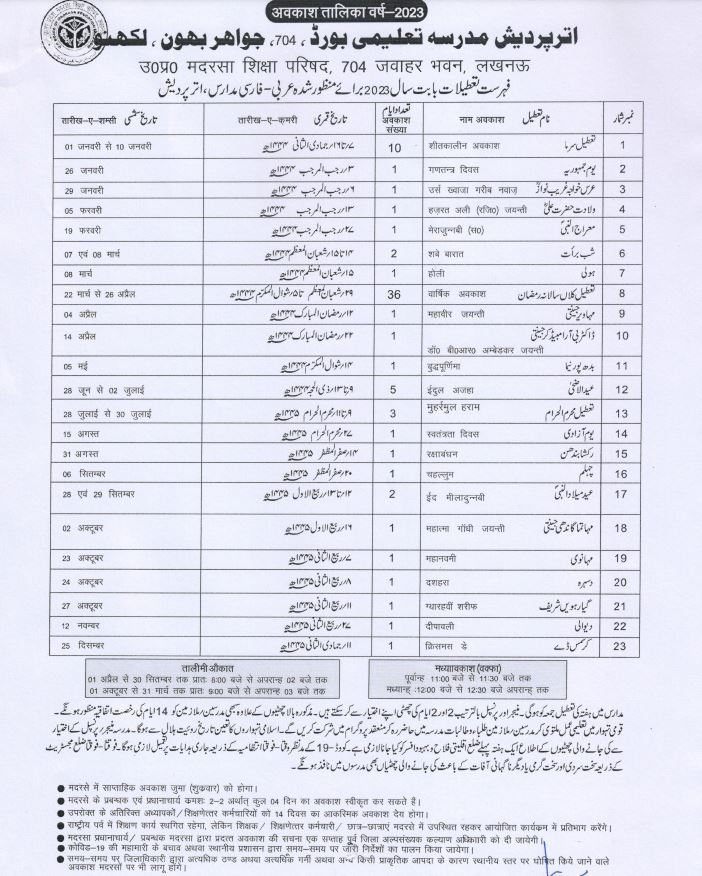 अवकाश तालिका वर्ष–2023
اترپردیش مدرسہ تعلیمی بورڈ، 704، جواہر بھون، لکھنؤ
उ0प्र0 मदरसा शिक्षा परिषद, 704 जवाहर भवन, लखनऊ
فہرست تعطیلات بابت سال 2023 برائے منظور شدہ عربی-فارسی مدارس، اترپردیش
तारीख–ए–शम्सी تاریخ شمسی तारीख–ए–कमरी تاریخ قمری تعداد ایام अवकाश संख्या नाम अवकाश نام تعطیل نمبر شمار
01 जनवरी से 10 जनवरी ۷ تا ۱۶؍جمادی الثانی ۱۴۴۴ھ 10 शीतकालीन अवकाश تعطیل سرما 1
26 जनवरी ۳؍رجب المرجب ۱۴۴۴ھ 1 गणतन्त्र दिवस یوم جمہوریہ 2
29 जनवरी ۶؍رجب المرجب ۱۴۴۴ھ 1 उर्स ख्वाजा गरीब नवाज़ عرس خواجہ غریب نوازؒ 3
05 फरवरी ۱۳؍رجب المرجب ۱۴۴۴ھ 1 हज़रत अली (रजि0) जयन्ती ولادت حضرت علیؓ 4
19 फरवरी ۲۷؍رجب المرجب ۱۴۴۴ھ 1 मेराजुन्नबी (स0) معراج النبیؐ 5
07 एवं 08 मार्च ۱۴ تا ۱۵؍شعبان المعظم ۱۴۴۴ھ 2 शबे बारात شب برأت 6
08 मार्च ۱۵؍شعبان المعظم ۱۴۴۴ھ 1 होली ہولی 7
22 मार्च से 26 अप्रैल ۲۹؍شعبان المعظم تا ۵؍شوال المکرم ۱۴۴۴ھ 36 वार्षिक अवकाश تعطیل کلاں سالانہ رمضان 8
04 अप्रैल ۱۲؍رمضان المبارک ۱۴۴۴ھ 1 महावीर जयन्ती مہاویر جینتی 9
14 अप्रैल ۲۲؍رمضان المبارک ۱۴۴۴ھ 1 डॉ0 बी0आर0 अम्बेडकर जयन्ती ڈاکٹر بی آر امبیڈکر جینتی 10
05 मई ۱۴؍شوال المکرم ۱۴۴۴ھ 1 बुद्धपूर्णिमा بدھ پورنیما 11
28 जून से 02 जुलाई ۹ تا ۱۳؍ذی الحجہ ۱۴۴۴ھ 5 ईदुल अजहा عید الاضحیٰ 12
28 जुलाई से 30 जुलाई ۹ تا ۱۱؍محرم الحرام ۱۴۴۵ھ 3 मुहर्रमुल हराम تعطیل محرم الحرام 13
15 अगस्त ۲۷؍محرم الحرام ۱۴۴۵ھ 1 स्वतंत्रता दिवस یوم آزادی 14
31 अगस्त ۱۴؍صفر المظفر ۱۴۴۵ھ 1 रक्षाबंधन رکشا بندھن 15
06 सितम्बर ۲۰؍صفر المظفر ۱۴۴۵ھ 1 चहल्लुम چہلم 16
28 एवं 29 सितम्बर ۱۲ تا ۱۳؍ربیع الاول ۱۴۴۵ھ 2 ईद मीलादुन्नबी عید میلاد النبیؐ 17
02 अक्टूबर ۱۶؍ربیع الاول ۱۴۴۵ھ 1 महात्मा गाँधी जयन्ती مہاتما گاندھی جینتی 18
23 अक्टूबर ۷؍ربیع الثانی ۱۴۴۵ھ 1 महानवमी مہانومی 19
24 अक्टूबर ۸؍ربیع الثانی ۱۴۴۵ھ 1 दशहरा دسہرہ 20
27 अक्टूबर ۱۱؍ربیع الثانی ۱۴۴۵ھ 1 ग्यारहवीं शरीफ گیارہویں شریف 21
12 नवम्बर ۲۷؍ربیع الثانی ۱۴۴۵ھ 1 दीपावली دیوالی 22
25 दिसम्बर ۱۱؍جمادی الثانی ۱۴۴۵ھ 1 क्रिसमस डे کرسمس ڈے 23
तालीमी औकात
01 अप्रैल से 30 सितम्बर तक प्रातः 8:00 बजे से अपरान्ह 02 बजे तक
01 अक्टूबर से 31 मार्च तक प्रातः 9:00 बजे से अपरान्ह 03 बजे तक
मध्याावकाश (वक्फा)
पूर्वान्ह 11:00 बजे से 11:30 बजे तक
मध्यान्ह :12:00 बजे से 12:30 बजे अपरान्ह तक
مدارس میں ہفتہ کی تعطیل جمعہ کو ہوگی۔ منیجر اور پرنسپل بالترتیب 2 اور 2 ایام کی چھٹی اپنے اختیار سے کر سکتے ہیں۔ مذکورہ بالا چھٹیوں کے علاوہ بھی مدرسین/ملازمین کو 14 ایام کی رخصت اتفاقیہ منظور ہونگے۔
قومی تہوار میں تعلیمی عمل ملتوی کر مدرسین/ملازمین طلباء و طالبات مدرسہ میں حاضر رہ کر منعقد پروگرام میں شرکت کریں گے۔ اسلامی تہواروں کا تعین تاریخ رویت ہلال سے ہوگا۔ مدرسہ منیجر/پرنسپل کے اختیار
سے کی جانے والی چھٹیوں کے اطلاع ایک ہفتہ پہلے ضلع اقلیتی فلاح و بہبود افسر کو کیا جانا لازمی ہے۔ کووڈ-19 کے مدنظر وقتاً فوقتاً انتظامیہ کے ذریعہ جاری ہدایات پر تعمیل لازی ہوگا۔ وقتاً-فوقتاً ضلع مجسٹریٹ
کے ذریعہ سخت سردی اور سخت گرمی یا دیگر ناگہانی آفات کے باعث کی جانے والی چھٹیاں بھی مدرسوں میں نافذ ہونگے۔
● मदरसे में साप्ताहिक अवकाश जुमा (शुक्रवार) को होगा।
● मदरसे के प्रबन्धक एवं प्रधानाचार्य क्रमशः 2–2 अर्थात् कुल 04 दिन का अवकाश स्वीकृत कर सकते है।
● उपरोक्त के अतिरिक्त अध्यापकों/ शिक्षणेत्तर कर्मचारियों को 14 दिवस का आकस्मिक अवकाश देय होगा।
● राष्ट्रीय पर्व में शिक्षण कार्य स्थगित रहेगा, लेकिन शिक्षक/ शिक्षणेत्तर कर्मचारी/ छात्र–छात्राएं मदरसे में उपस्थित रहकर आयोजित कार्यक्रम में प्रतिभाग करेंगे।
● मदरसा प्रधानाचार्य/ प्रबन्धक मदरसा द्वारा प्रदत्त अवकाश की सूचना एक सप्ताह पूर्व जिला अल्पसंख्यक कल्याण अधिकारी को दी जायेगी।
● कोविड–19 की महामारी के बचाव अथवा स्थानीय प्रशासन द्वारा समय–समय पर जारी निर्देशों का पालन किया जायेगा।
● समय–समय पर जिलाधिकारी द्वारा अत्यधिक ठण्ड अथवा अत्यधिक गर्मी अथवा अन्य किसी प्राकृतिक आपदा के कारण स्थानीय स्तर पर घोषित किये जाने वाले
अवकाश मदरसों पर भी लागू होंगे।